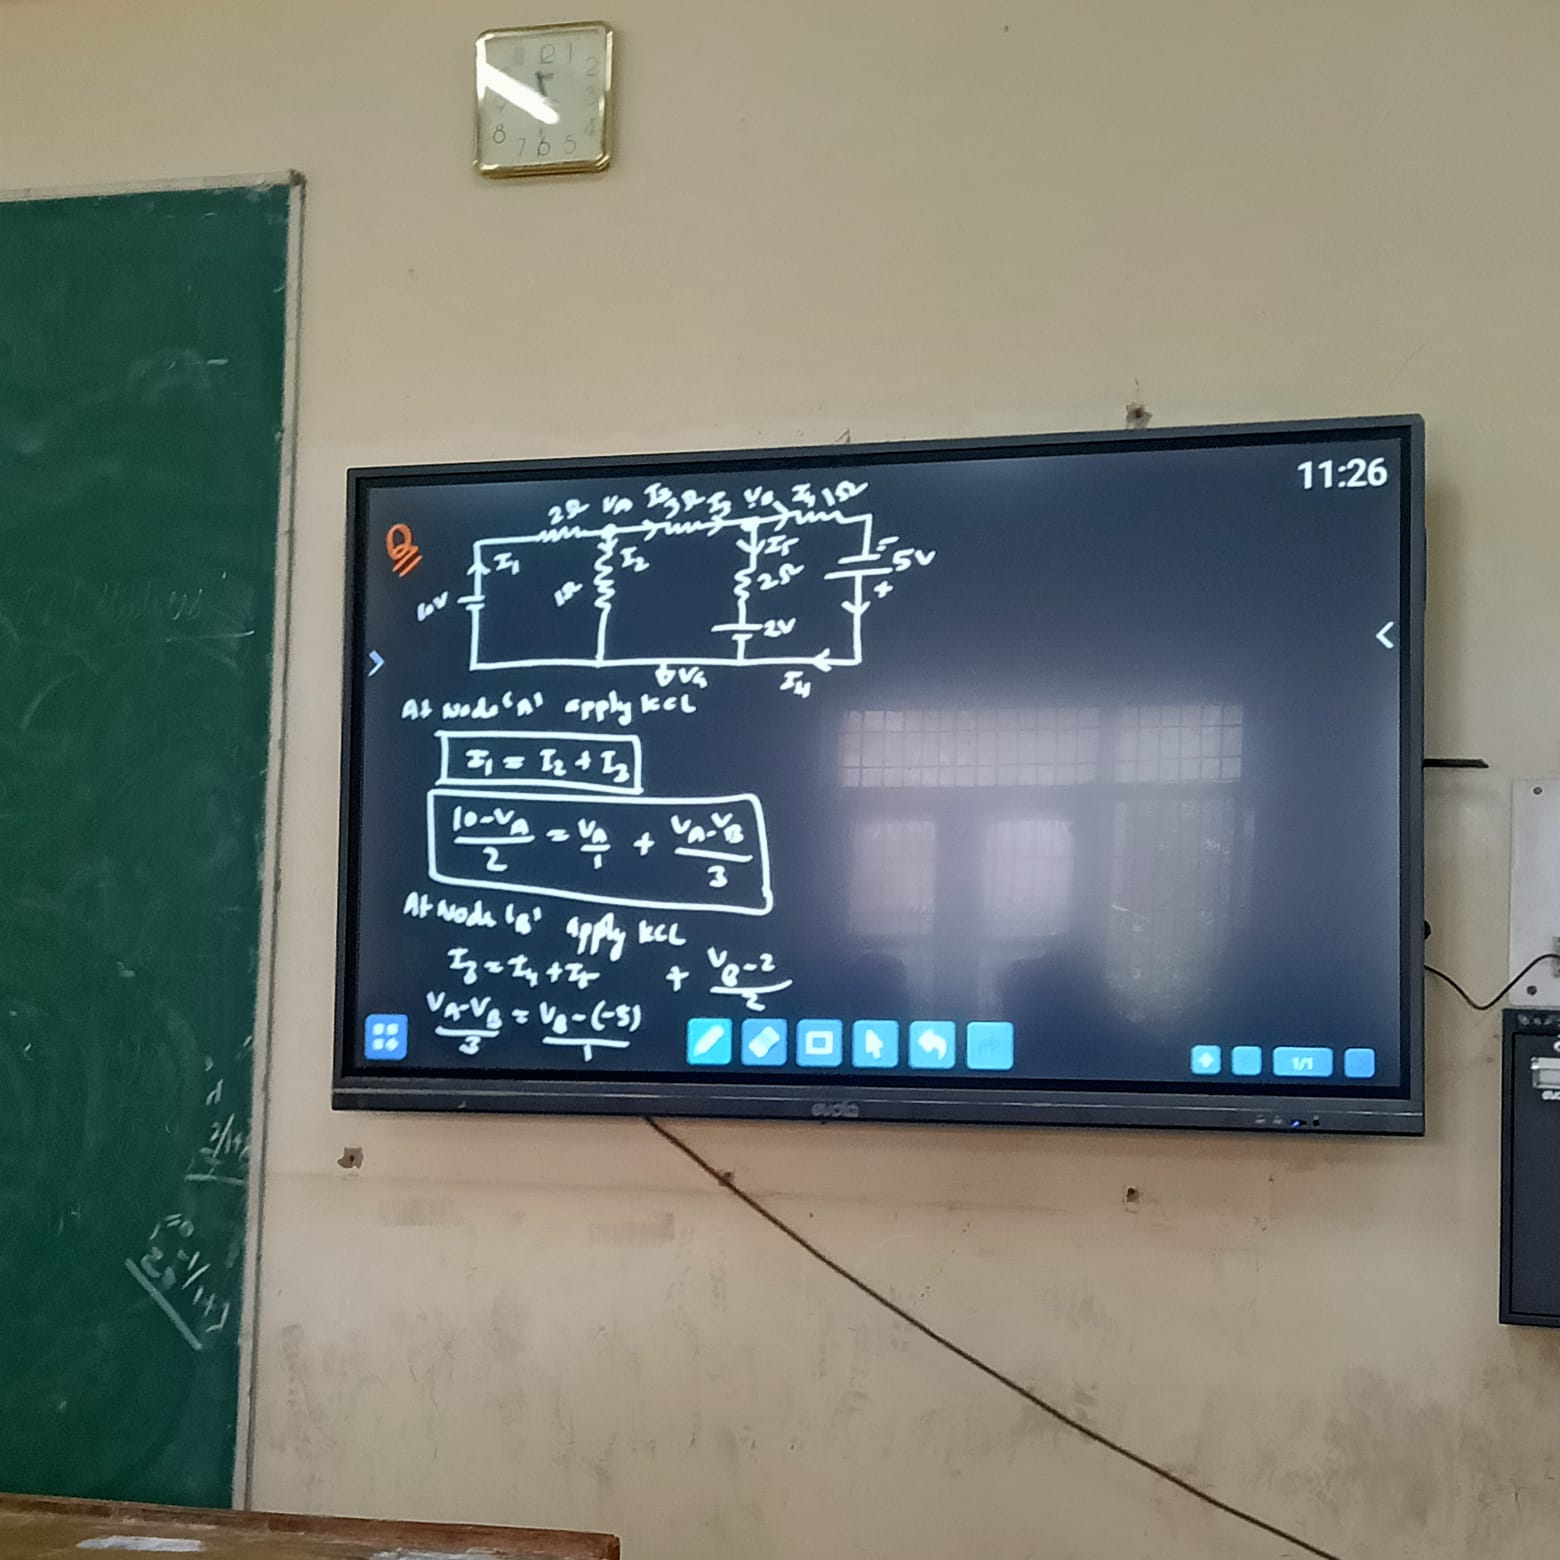 12 1
2
3
4
5
6
7
8
9
11:26
Q
2Ω VA I3 3Ω I3 VB I4 1Ω
I1 I2 I5
10V 1Ω 2Ω - 5V
+
2V
VG I4
At Node 'A' apply KCL
I1 = I2 + I3
10-VA/2 = VA/1 + VA-VB/3
At Node 'B' apply KCL
I3 = I4 + I5
VA-VB/3 = VB-(-5)/1 + VB-2/2
1/1